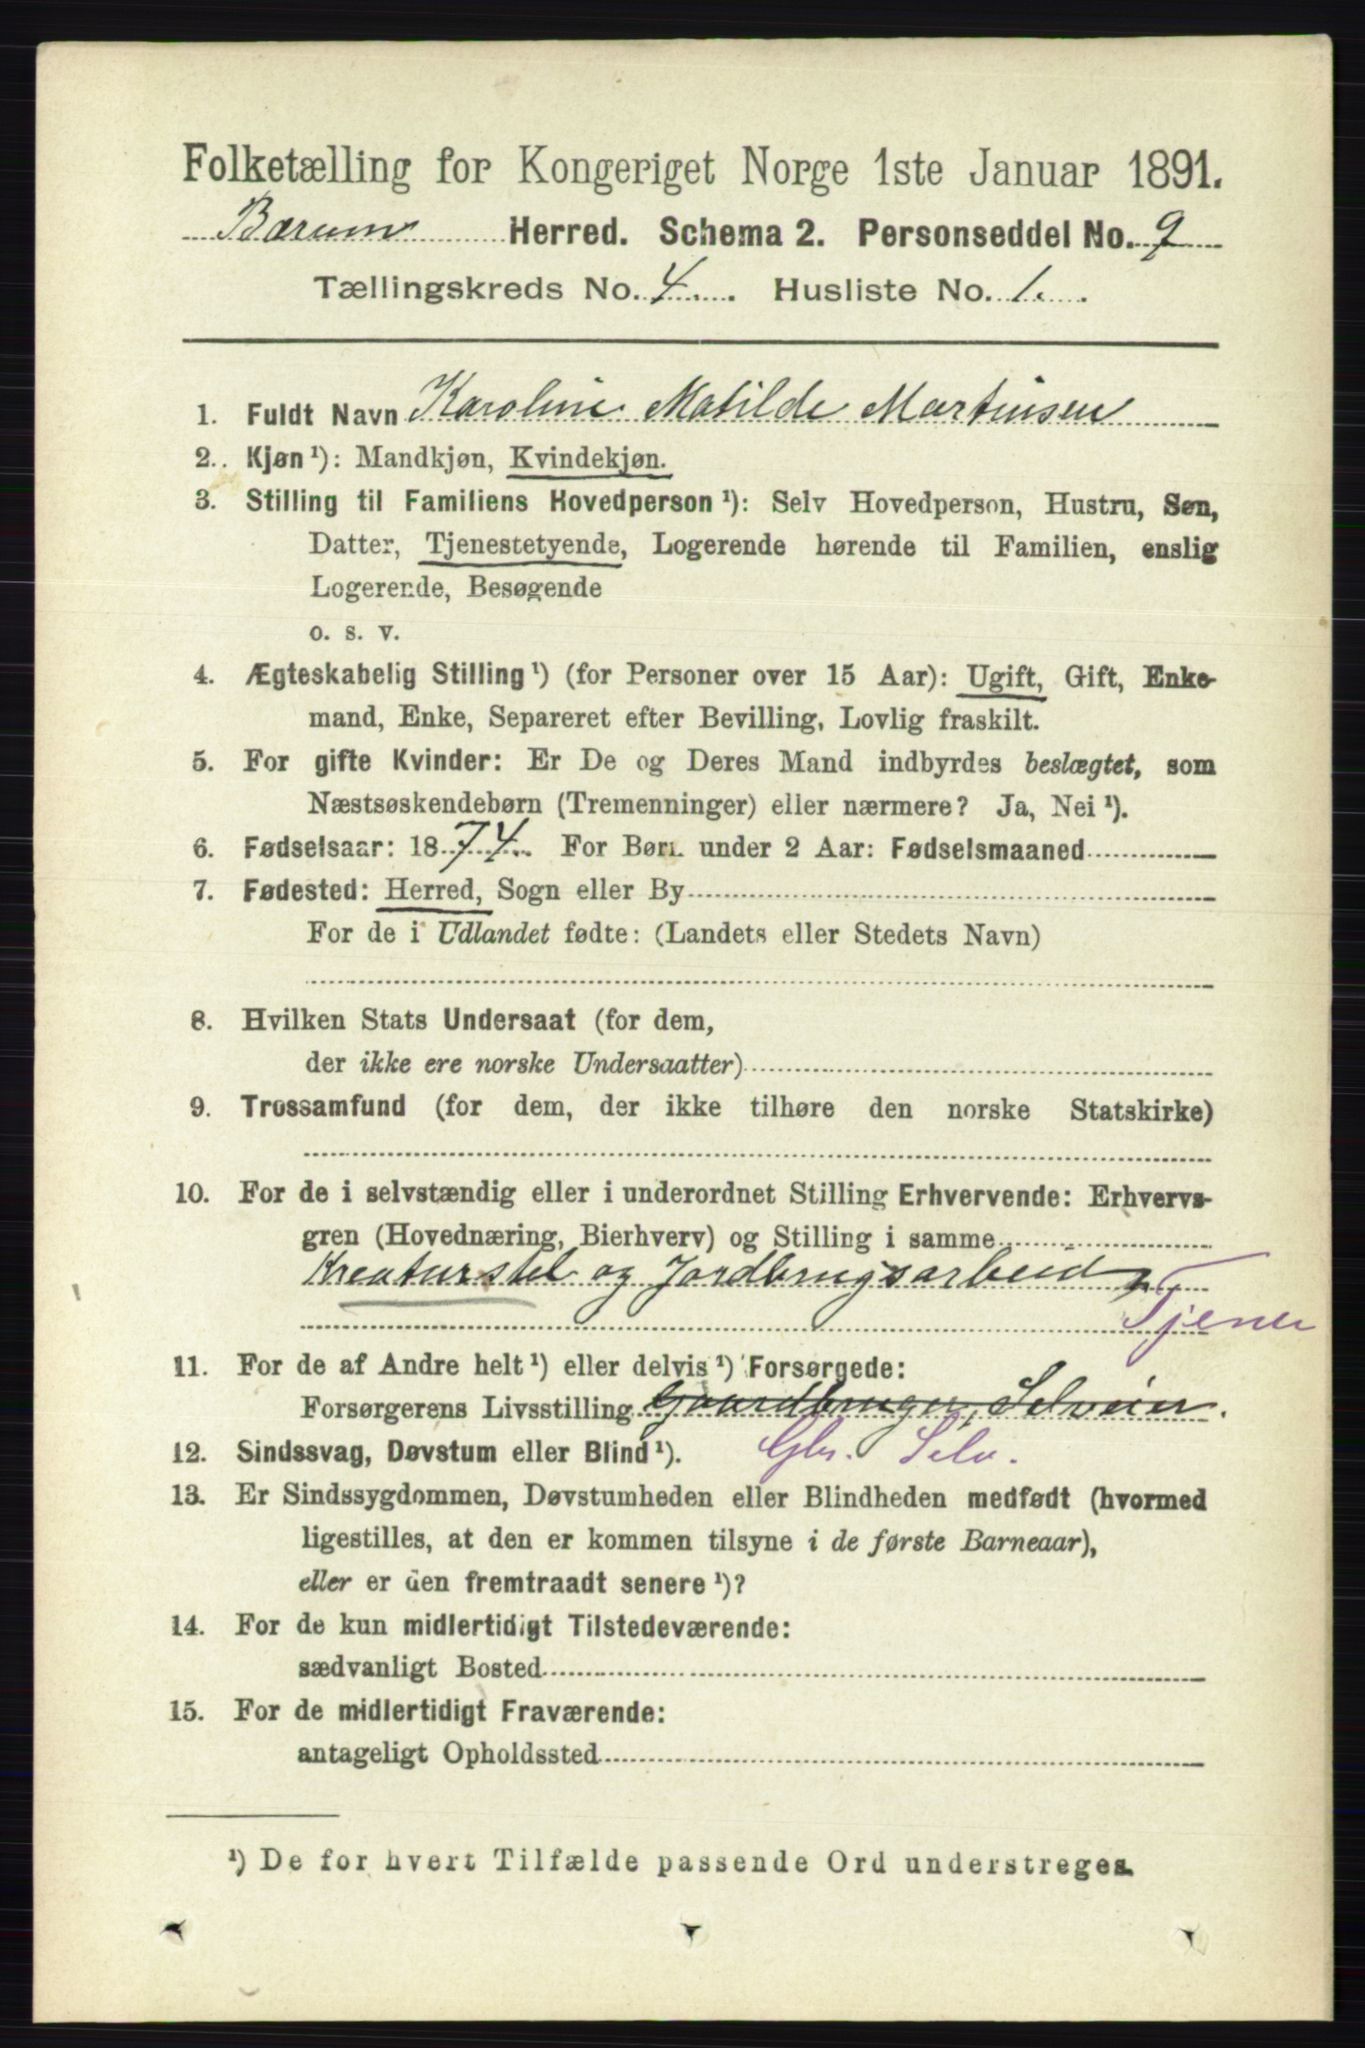 Folketælling for Kongeriget Norge 1ste Januar 1891.
Bærum Herred. Schema 2. Personseddel No. 9
Tællingskreds No. 4. Husliste No. 1.
1. Fuldt Navn Karoline Matilde Martinsen
2. Kjøn ¹): Mandkjøn, Kvindekjøn.
3. Stilling til Familiens Hovedperson ¹): Selv Hovedperson, Hustru, Søn,
Datter, Tjenestetyende, Logerende hørende til Familien, enslig
Logerende, Besøgende
o. s. v.
4. Ægteskabelig Stilling ¹) (for Personer over 15 Aar): Ugift, Gift, Enke-
mand, Enke, Separeret efter Bevilling, Lovlig fraskilt.
5. For gifte Kvinder: Er De og Deres Mand indbyrdes beslægtet, som
Næstsøskendebørn (Tremenninger) eller nærmere? Ja, Nei ¹).
6. Fødselsaar: 1874. For Børn under 2 Aar: Fødselsmaaned
7. Fødested: Herred, Sogn eller By
For de i Udlandet fødte: (Landets eller Stedets Navn)
8. Hvilken Stats Undersaat (for dem,
der ikke ere norske Undersaatter)
9. Trossamfund (for dem, der ikke tilhøre den norske Statskirke)
10. For de i selvstændig eller i underordnet Stilling Erhvervende: Erhvervs-
gren (Hovednæring, Bierhverv) og Stilling i samme
Kreaturstel og Jordbrugsarbeid,
Tjener
11. For de af Andre helt ¹) eller delvis ¹) Forsørgede:
Forsørgerens Livsstilling Gaardbruger, Selveier.
12. Sindssvag, Døvstum eller Blind ¹). Gbr. Selv.
13. Er Sindssygdommen, Døvstumheden eller Blindheden medfødt (hvormed
ligestilles, at den er kommen tilsyne i de første Barneaar),
eller er den fremtraadt senere ¹)?
14. For de kun midlertidigt Tilstedeværende:
sædvanligt Bosted
15. For de midlertidigt Fraværende:
antageligt Opholdssted
¹) De for hvert Tilfælde passende Ord understreges.